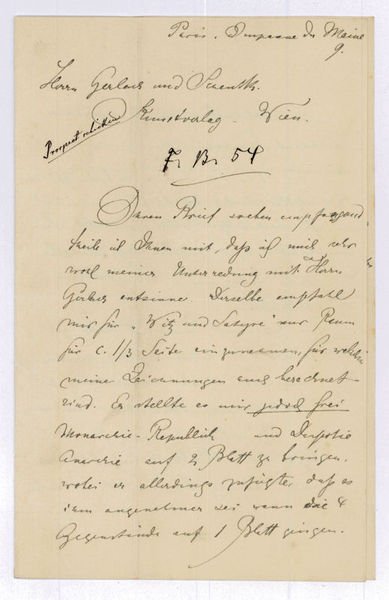 Paris. Impasse du Maine
9.
Herrn Gerlach und Schenk.
Kunstverlag. Wien.
Prospect schicken
F. Br. 54
Deren Brief soeben empfangend
theile ich Ihnen mit, daß ich mich sehr
wohl meiner Unterredung mit Herrn
Gerlach entsinne. Derselbe empfahl
mir für „Witz und Satyre" nur Raum
für c. 1/3 Seite einzunehmen, für welche
meine Zeichnungen auch berechnet
sind. Er stellte es mir jedoch frei
Monarchie-Republik und Despotie
Anarchie auf 2 Blatt zu bringen,
wobei er allerdings zufügte, daß es
ihm angenehmer sei wenn die 4
Gegenstände auf 1 Blatt gingen.